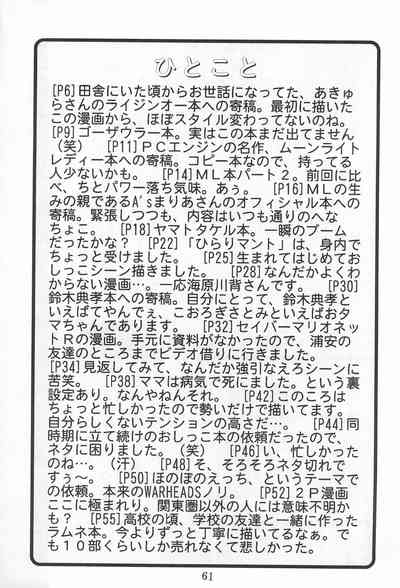 ひとこと
[P6]田舎にいた頃からお世話になってた、あきゅ
らさんのライジンオー本への寄稿。最初に描いた
この漫画から、ほぼスタイル変わってないのね。
[P9]ゴーザウラー本。実はこの本まだ出てません
（笑） [P11]ＰＣエンジンの名作、ムーンライト
レディー本への寄稿。コピー本なので、持ってる
人少ないかも。 [P14]ＭＬ本パート２。前回に比
べ、ちとパワー落ち気味。あぅ。 [P16]ＭＬの生
みの親であるA'sまりあさんのオフィシャル本への
寄稿。緊張しつつも、内容はいつも通りのへな
ちょこ。 [P18]ヤマトタケル本。一瞬のブーム
だったかな？ [P22]「ひらりマント」は、身内で
ちょっと受けました。 [P25]生まれてはじめてお
しっこシーン描きました。 [P28]なんだかよくわ
からない漫画…。一応海原川背さんです。 [P30]
鈴木典孝本への寄稿。自分にとって、鈴木典孝と
いえばてやんでぇ、こおろぎさとみといえばおタ
マちゃんであります。 [P32]セイバーマリオネッ
トＲの漫画。手元に資料がなかったので、浦安の
友達のところまでビデオ借りに行きました。
[P34]見返してみて、なんだか強引なえろシーンに
苦笑。 [P38]ママは病気で死にました。という裏
設定あり。なんやねんそれ。 [P42]このころは
ちょっと忙しかったので勢いだけで描いてます。
自分らしくないテンションの高さだ…。 [P44]同
時期に立て続けのおしっこ本の依頼だったので、
ネタに困りました。（笑） [P46]い、忙しかった
のね…。（汗） [P48]そ、そろそろネタ切れで
すぅ〜。 [P50]ほのぼのえっち、というテーマで
の依頼。本来のWARHEADSノリ。 [P52]２Ｐ漫画
ここに極まれり。関東圏以外の人には意味不明か
も？ [P55]高校の頃、学校の友達と一緒に作った
ラムネ本。今よりずっと丁寧に描いてるなぁ。で
も１０部くらいしか売れなくて悲しかった。
61